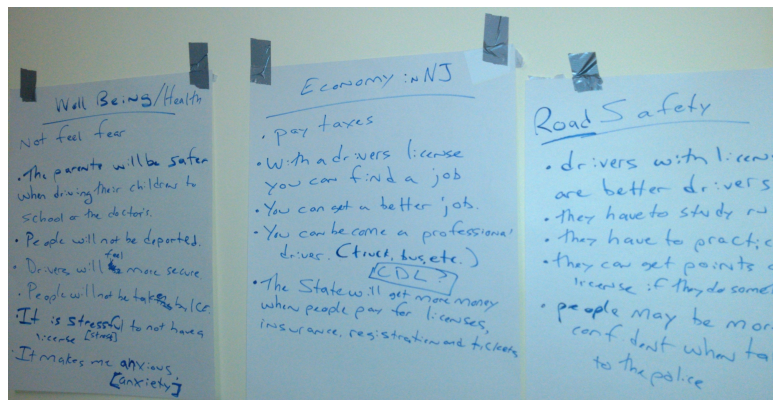 Well Being/Health
Not feel fear
• The parents will be safer
when driving their children to
school or the doctors.
• People will not be deported.
• Drivers will feel more secure
• People will not be taken by ICE.
• It is stressful to not have a
license [stress]
• It makes me anxious
[anxiety]
Economy in NJ
• pay taxes
• With a drivers license
you can find a job
• You can get a better job.
• You can become a professional
driver. (truck, bus, etc.)
CDL?
• The State will get more money
when people pay for licenses,
insurance, registration and tickets
Road Safety
• drivers with licen
are better drivers
• they have to study ru
• they have to practic
• they can get points o
license if they do some
• people may be mor
confident when ta
to the police